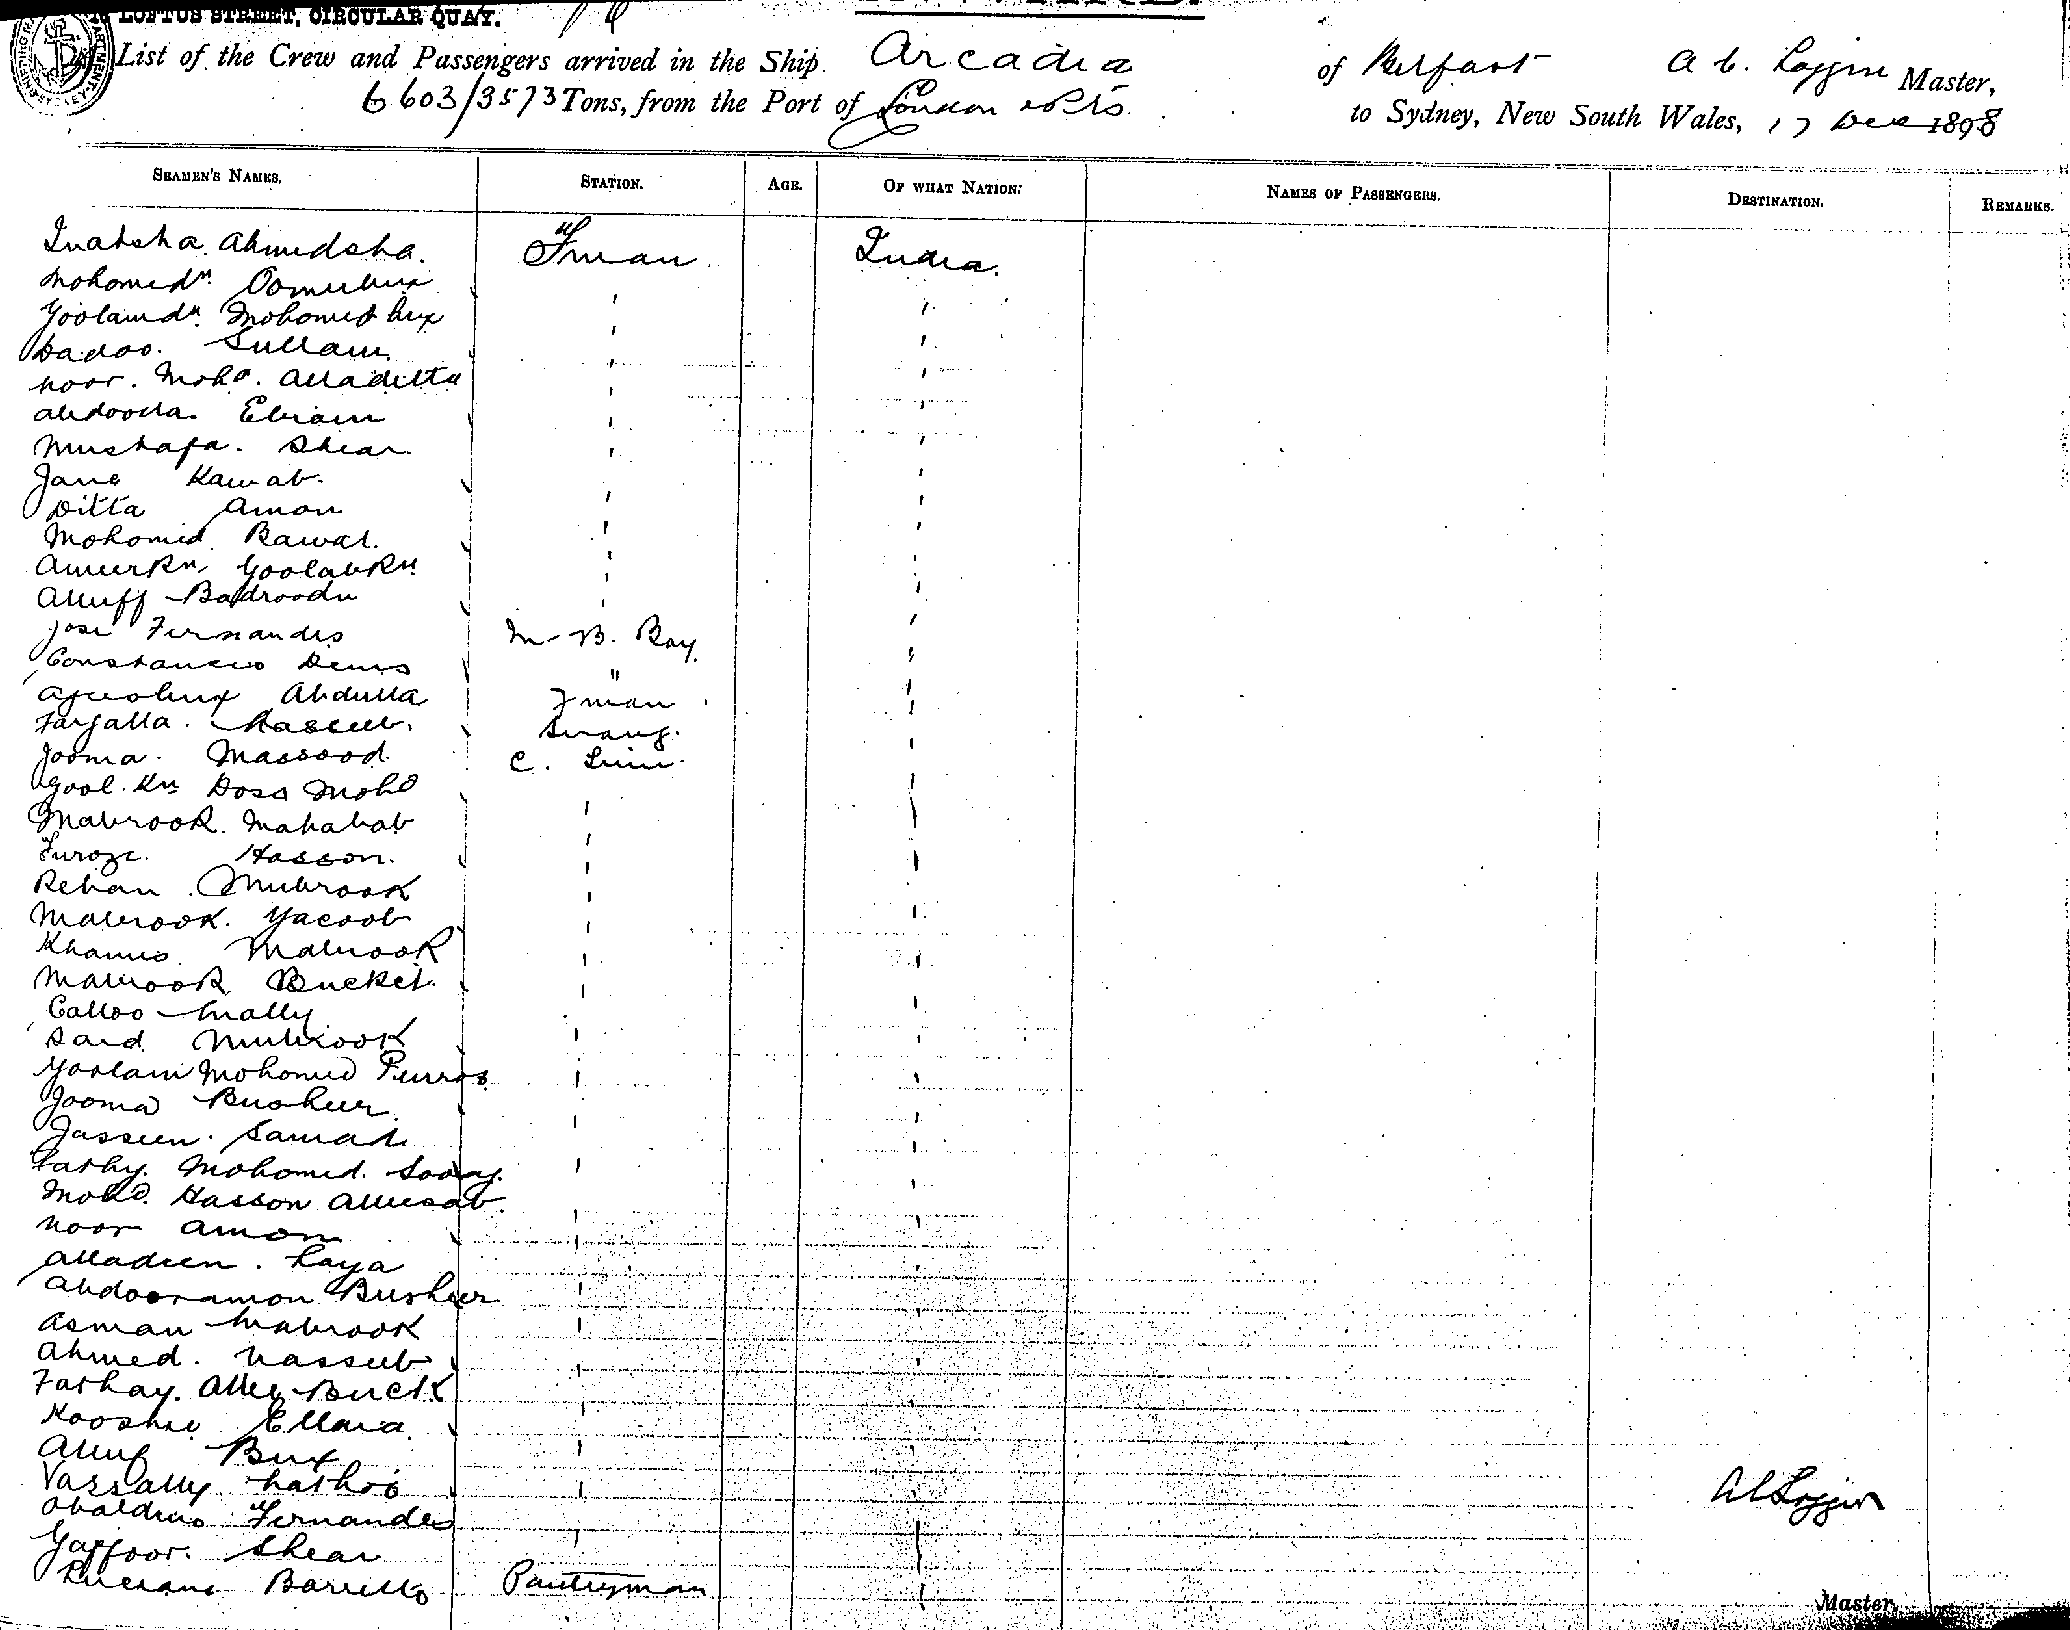 LOFTUS STREET, CIRCULAR QUAY.
List of the Crew and Passengers arrived in the Ship Arcadia of Belfast A C. Loggin Master,
6603/3573 Tons, from the Port of London & Pts to Sydney, New South Wales, 17 Dec 1898
SEAMEN'S NAMES. STATION. AGE. OF WHAT NATION: NAMES OF PASSENGERS. DESTINATION. REMARKS.
Ahmedsha. Fman India.
Mohomedn.
Mohomed bux
Dadoo. Sullam
Noor. Mohd. Alladitta
Abdoola. Ebram
Mustafa. Shear
Jane
Ditta Amon
Mohomed Rawat.
Ameerkn Goolabkn
Alluff Badroodn
Jose Fernandes M. B. Boy.
Constancio Denis "
Abdulla Fman
Farjalla. Serang.
Jooma. Massood. C.
Gool. Kn Doss Mohd
Mabrook. Mahabab
Furoze. Hasson.
Rehan Mubrook
Mabrook. Yacoob
Khamis Mabrook
Mabrook Bucket.
Calloo
Said Mubrook
Goolam Mohomed
Jooma Busheer.
Jasseen.
Mohomed.
Mohd. Hasson
Noor Amon
Alladeen. Laya
Abdooramon Busheer
Asman Mabrook
Ahmed. Nasseeb
Fathay. Allee Buck
Ellaia.
Alluf Bux
Vazzally Nathoo
Obaldino Fernandes
Gaffoor. Shear
Luciano Barretto Pantryman
A C Loggin
Master